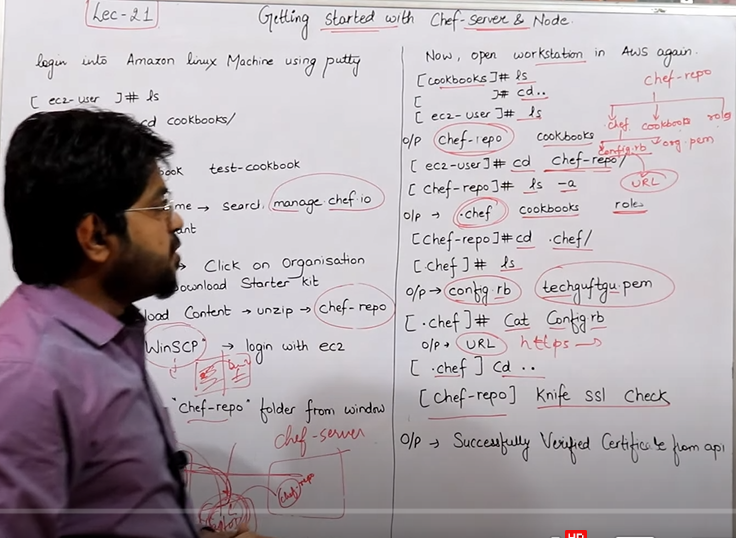 Lec-21
Getting started with Chef-Server & Node.
login into Amazon linux Machine using putty
[ ec2-user ]# ls
cd cookbooks/
test-cookbook
→ Search. manage.chef.io
→ Click on Organisation
Download Starter kit
Content → unzip → chef-repo
WinSCP" → login with ec2
"chef-repo" folder from window
chef-server
chef-repo
Now, open workstation in AWS again.
[cookbooks]# ls
[ ]# cd..
[ ec2-user ]# ls
O/P chef-repo cookbooks
[ ec2-user]# cd chef-repo/
[ chef-repo]# ls -a
O/P → .chef cookbooks roles
[chef-repo]# cd .chef/
[.chef]# ls
O/P → config.rb techguftgu.pem
[.chef]# Cat Config.rb
O/P → URL https →
[ .chef ] cd ..
[chef-repo] Knife ssl Check
O/P → Successfully Verified Certificate from api
chef-repo
.chef cookbooks role
config.rb org.pem
URL
HD